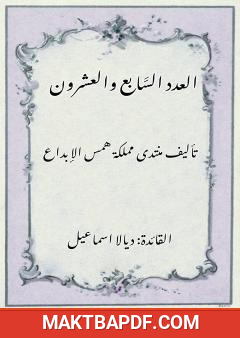 العدد السَّابع والعشرون
تأليف منتدى مملكة همس الإبداع
القائدة: ديالا اسماعيل
MAKTBAPDF.COM